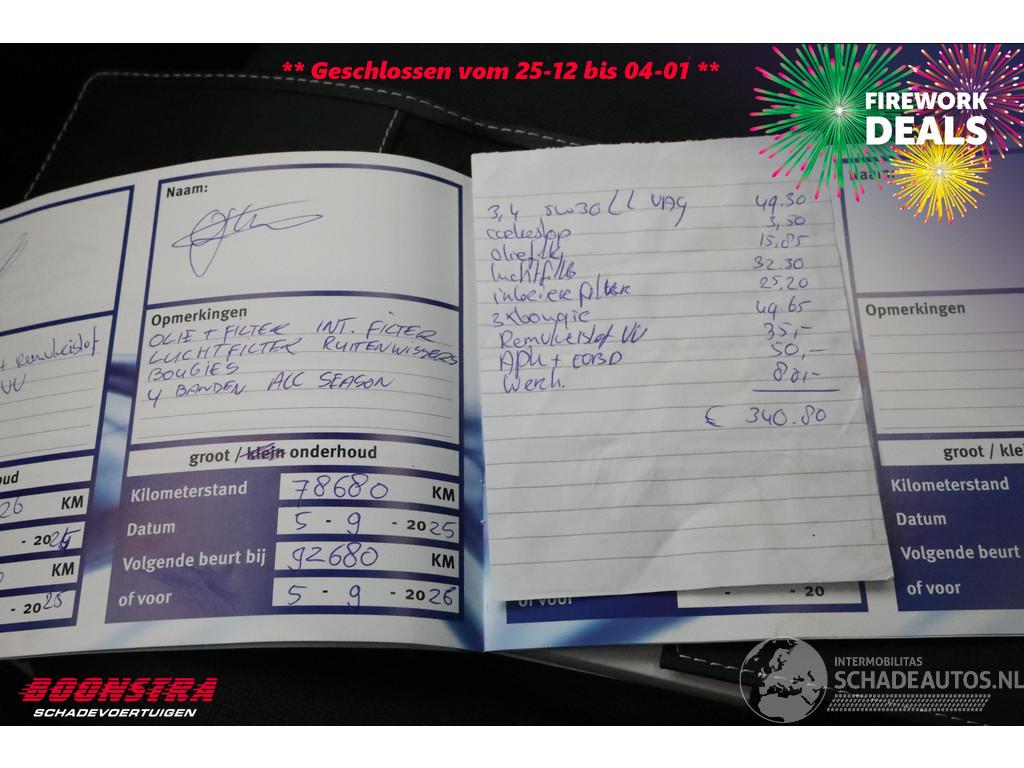 ** Geschlossen vom 25-12 bis 04-01 **
FIREWORK
DEALS
+ Remvleistof
VV
26 KM
- 2025
KM
- 2025
Naam:
Opmerkingen
OLIE + FILTER INT. FILTER
LUCHTFILTER RUITENWISSERS
BOUGIES
4 BANDEN ALL SEASON
groot / klein onderhoud
Kilometerstand 78680 KM
Datum 5 - 9 - 2025
Volgende beurt bij 92680 KM
of voor 5 - 9 - 2026
3,4 5w30 LL VAG 49.30
3,50
oliefilt 15,85
luchtfilt 32.30
interieur filter 25,20
3x bougie 49.65
Remvleistof VV 35,-
APK + EOBD 50,-
Werk. 80,-
€ 340.80
of voor - - 20
Naam:
Opmerkingen
groot / klei
Kilometerstand
Datum
Volgende beurt
of voor
BOONSTRA
SCHADEVOERTUIGEN
INTERMOBILITAS
SCHADEAUTOS.NL